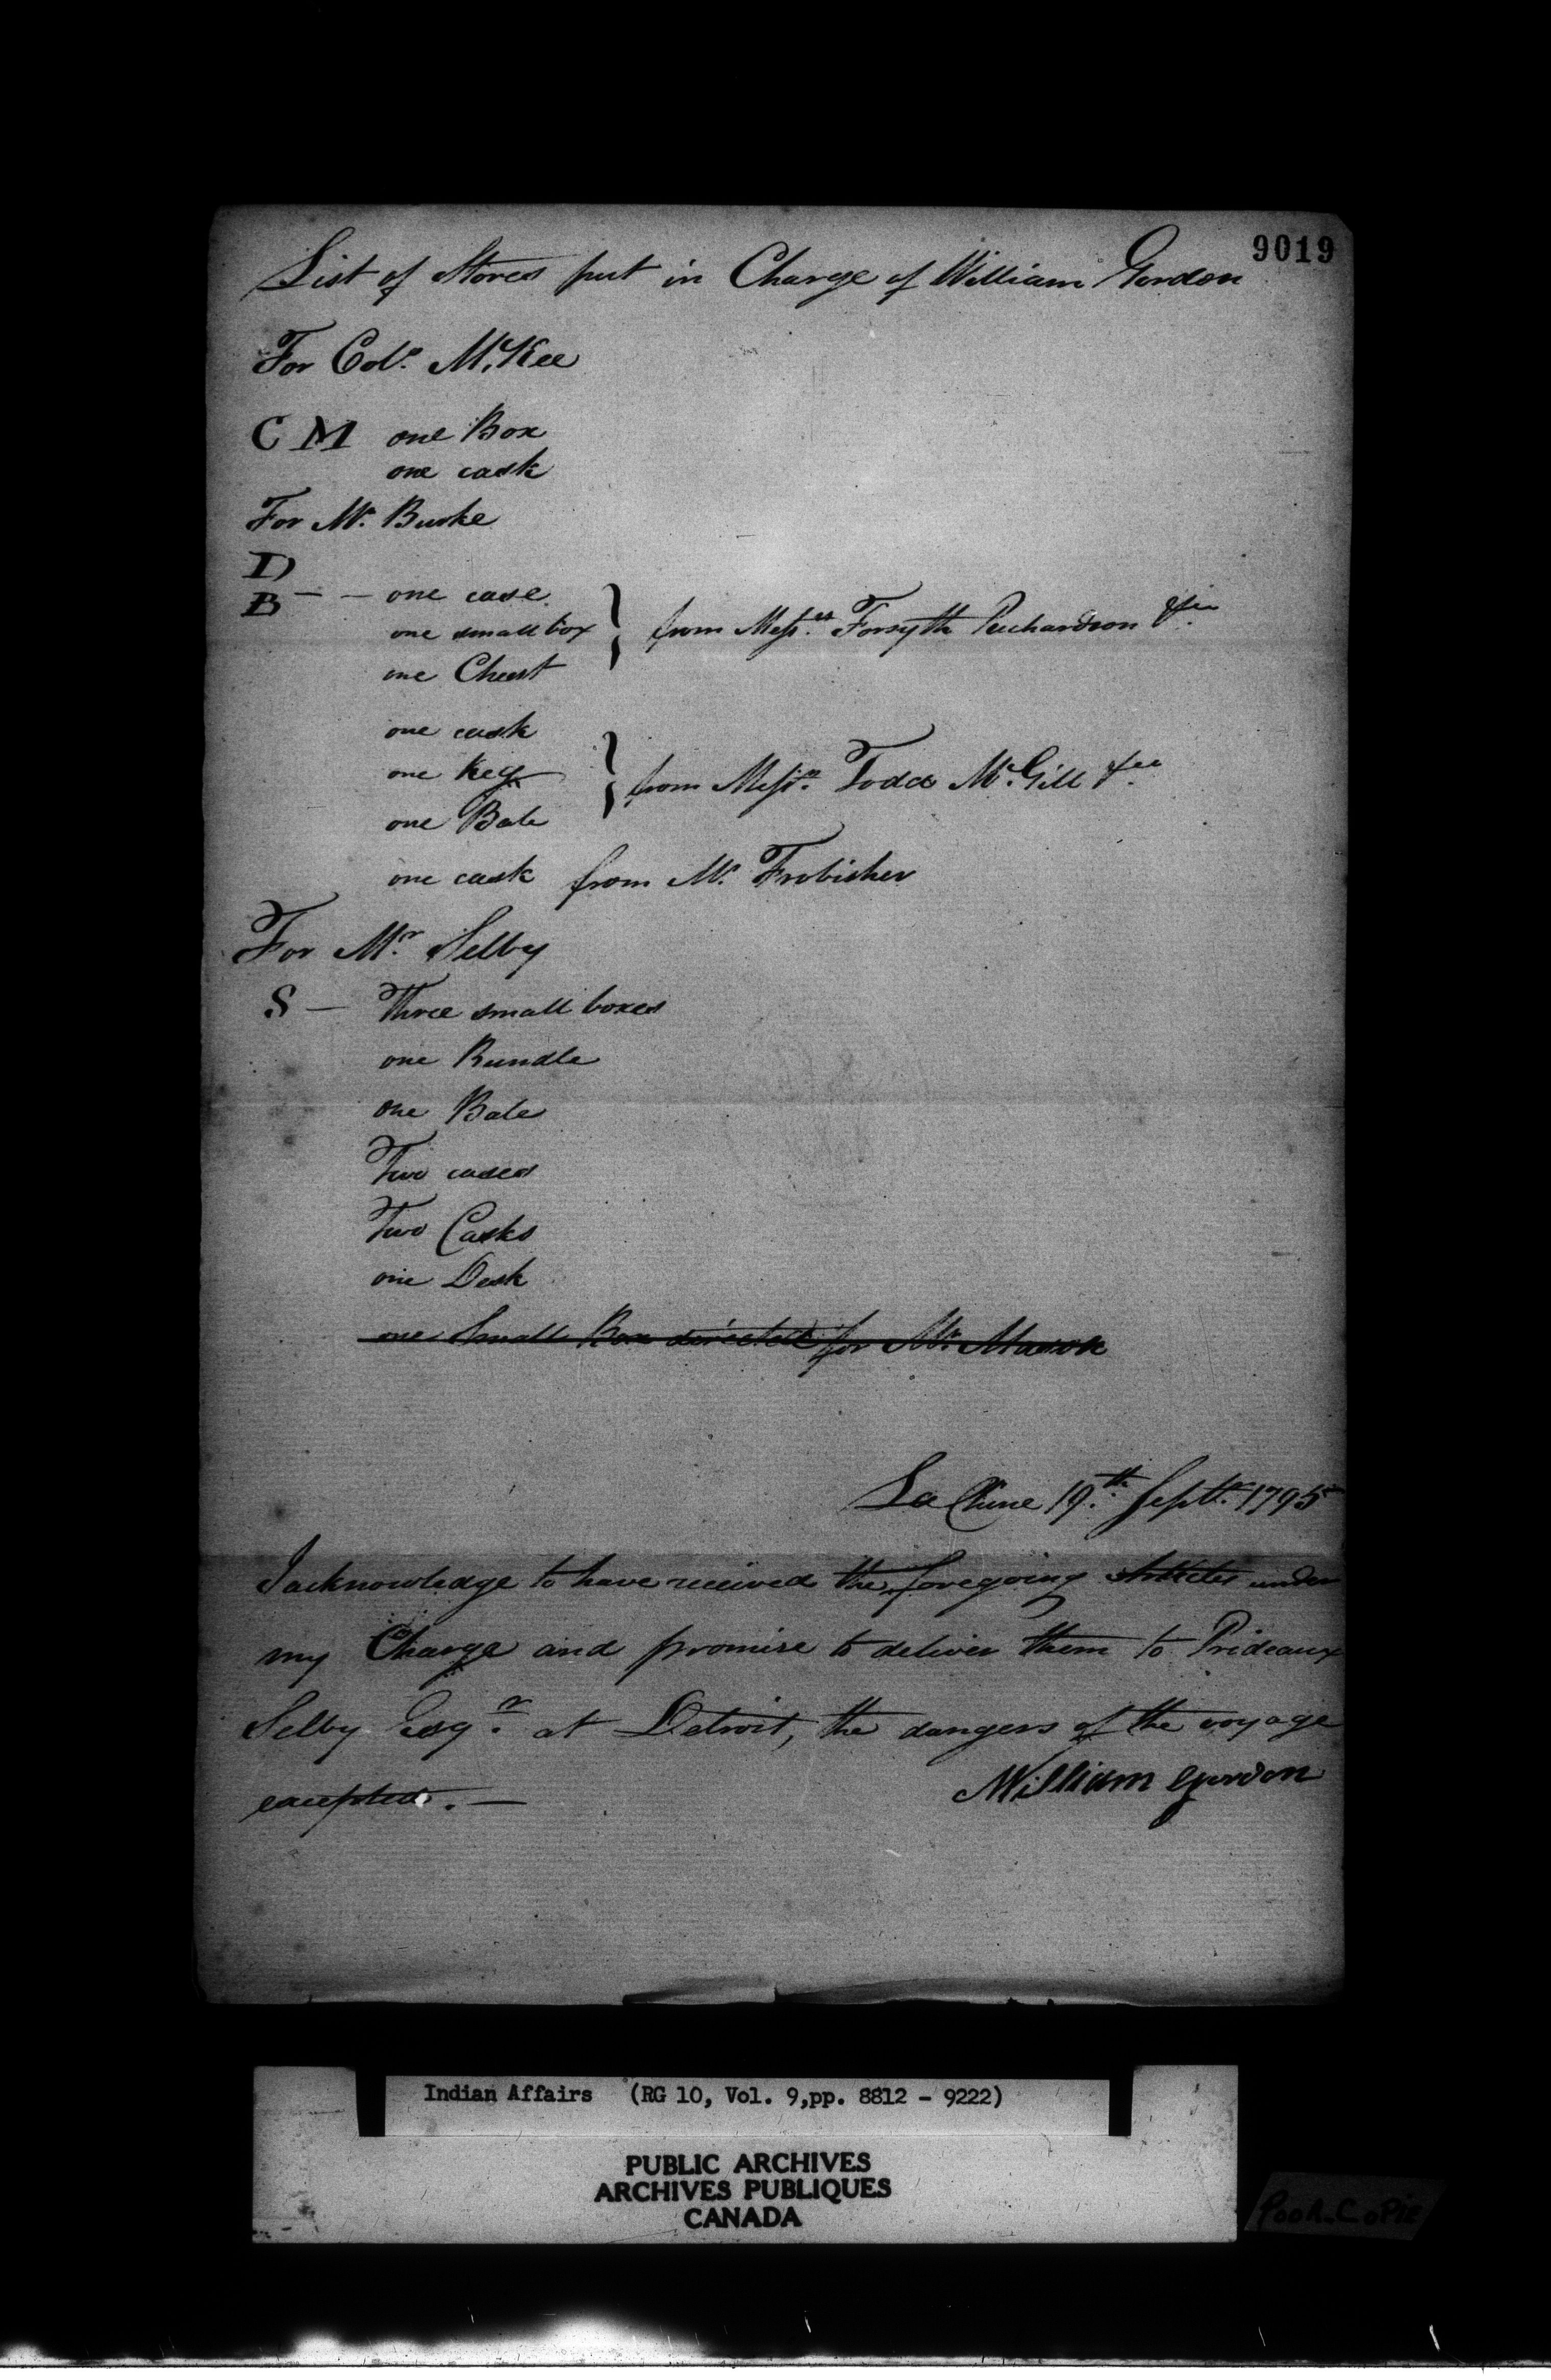 9019
List of Stores put in Charge of William Gordon
For Colo. McKee
C M one Box
one cask
For Mr. Burke
D
B - - one case
one small box } from Messrs. Forsyth Richardson & Co.
one Chest
one cask
one Keg } from Messrs. Todd McGill & Co.
one Bale
one cask from Mr. Frobisher
For Mr. Selby
S - Three small boxes
one Bundle
one Bale
Two cases
Two Casks
one Desk
one Small Box directed for Mr.
La Chine 19th. Septr. 1795
I acknowledge to have received the foregoing Articles under
my Charge and promise to deliver them to Prideaux
Selby Esqr. at Detroit, the dangers of the voyage
excepted. -
William Gordon
Indian Affairs (RG 10, Vol. 9,pp. 8812 - 9222)
PUBLIC ARCHIVES
ARCHIVES PUBLIQUES
CANADA
Poor Copie